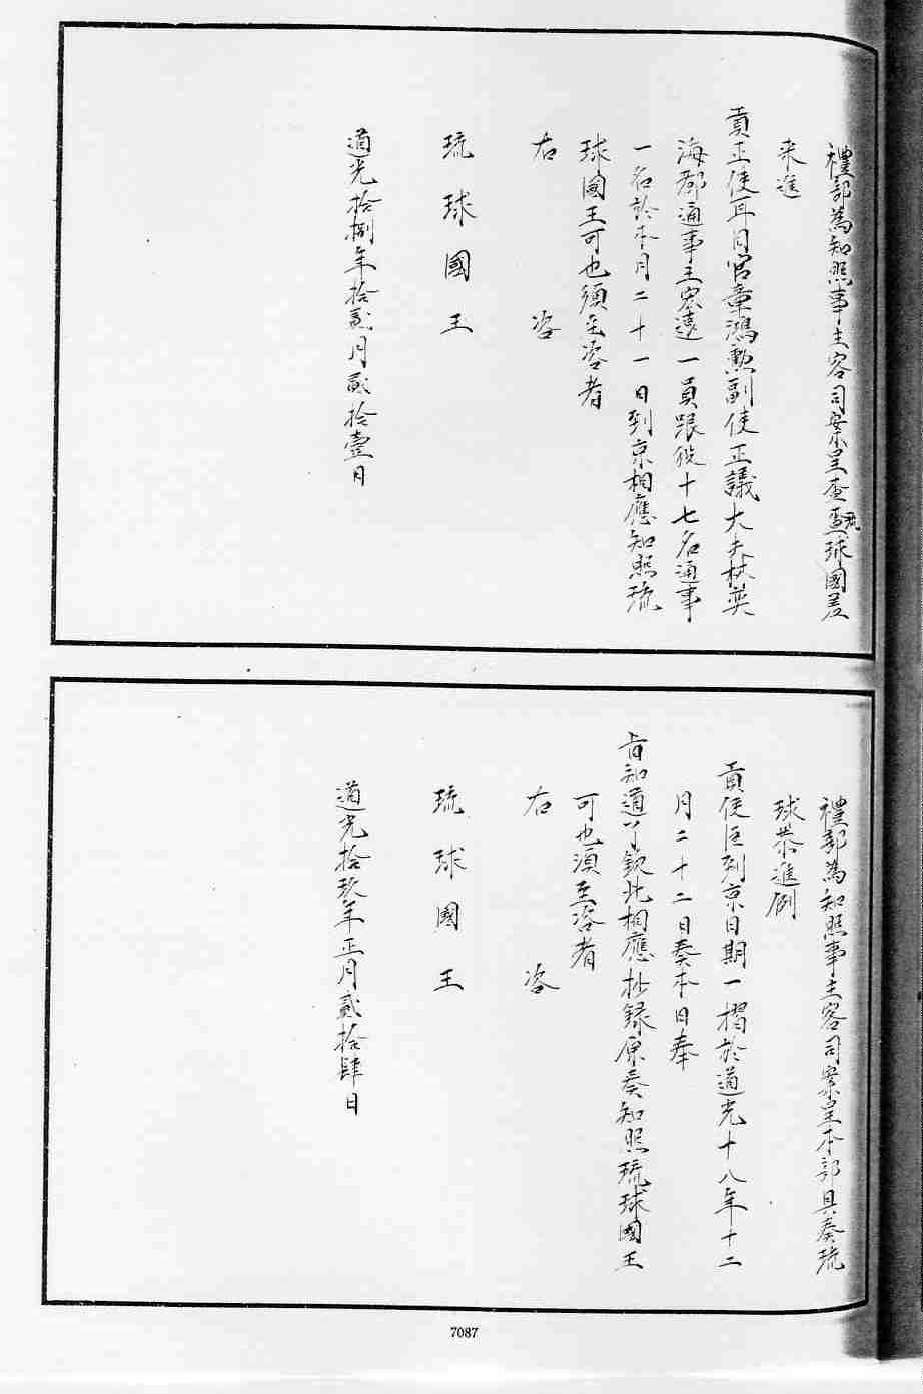 禮部為知照事主客司案呈查琉球國差
来進
貢正使耳目官章鴻勲副使正議大夫林奕
海都通事王宏遠一員跟伴十七名通事
一名於本月二十一日到京相應知照琉
球國王可也須至咨者
右咨
琉球國王
道光拾捌年拾貳月貳拾壹日
禮部為知照事主客司案呈本部具奏琉
球恭進例
貢使臣到京日期一摺於道光十八年十二
月二十二日奏本日奉
旨知道了欽此相應抄録原奏知照琉球國王
可也須至咨者
右咨
琉球國王
道光拾玖年正月貳拾肆日
7087